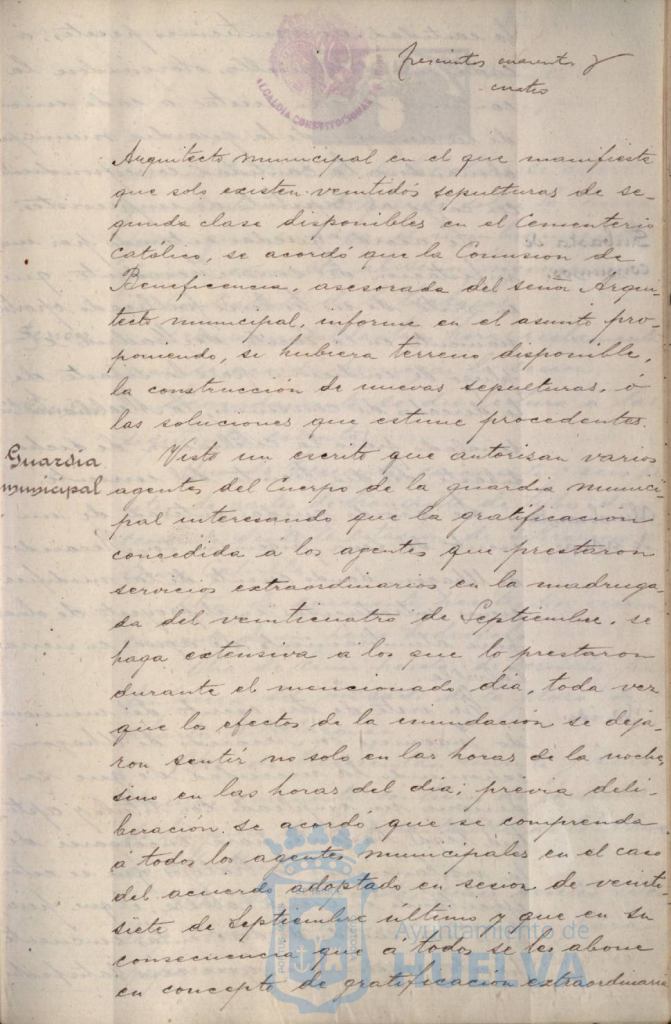 ALCALDIA CONSTITUCIONAL DE
trescientos cuarenta y
cuatro
Arquitecto municipal en el que manifiesta
que solo existen veintidós sepulturas de se-
gunda clase disponibles en el Cementerio
católico, se acordó que la Comision de
Beneficencia, asesorada del señor Arqui-
tecto municipal, informe en el asunto pro-
poniendo, si hubiera terreno disponible,
la construcción de nuevas sepulturas, ó
las soluciones que estime procedentes.
Guardia
municipal
Visto un escrito que autorisan varios
agentes del Cuerpo de la guardia munici-
pal interesando que la gratificación
concedida á los agentes que prestaron
servicios extraordinarios en la madruga-
da del veinticuatro de Septiembre, se
haga extensiva á los que lo prestaron
durante el mencionado dia, toda vez
que los efectos de la inundación se deja-
ron sentir no solo en las horas de la noche,
sino en las horas del dia; previa deli-
beración se acordó que se comprenda
á todos los agentes municipales en el caso
del acuerdo adoptado en sesion de veinti-
siete de Septiembre último y que en su
consecuencia que á todos se les abone
en concepto de gratificación extraordinaria
Ayuntamiento de
HUELVA